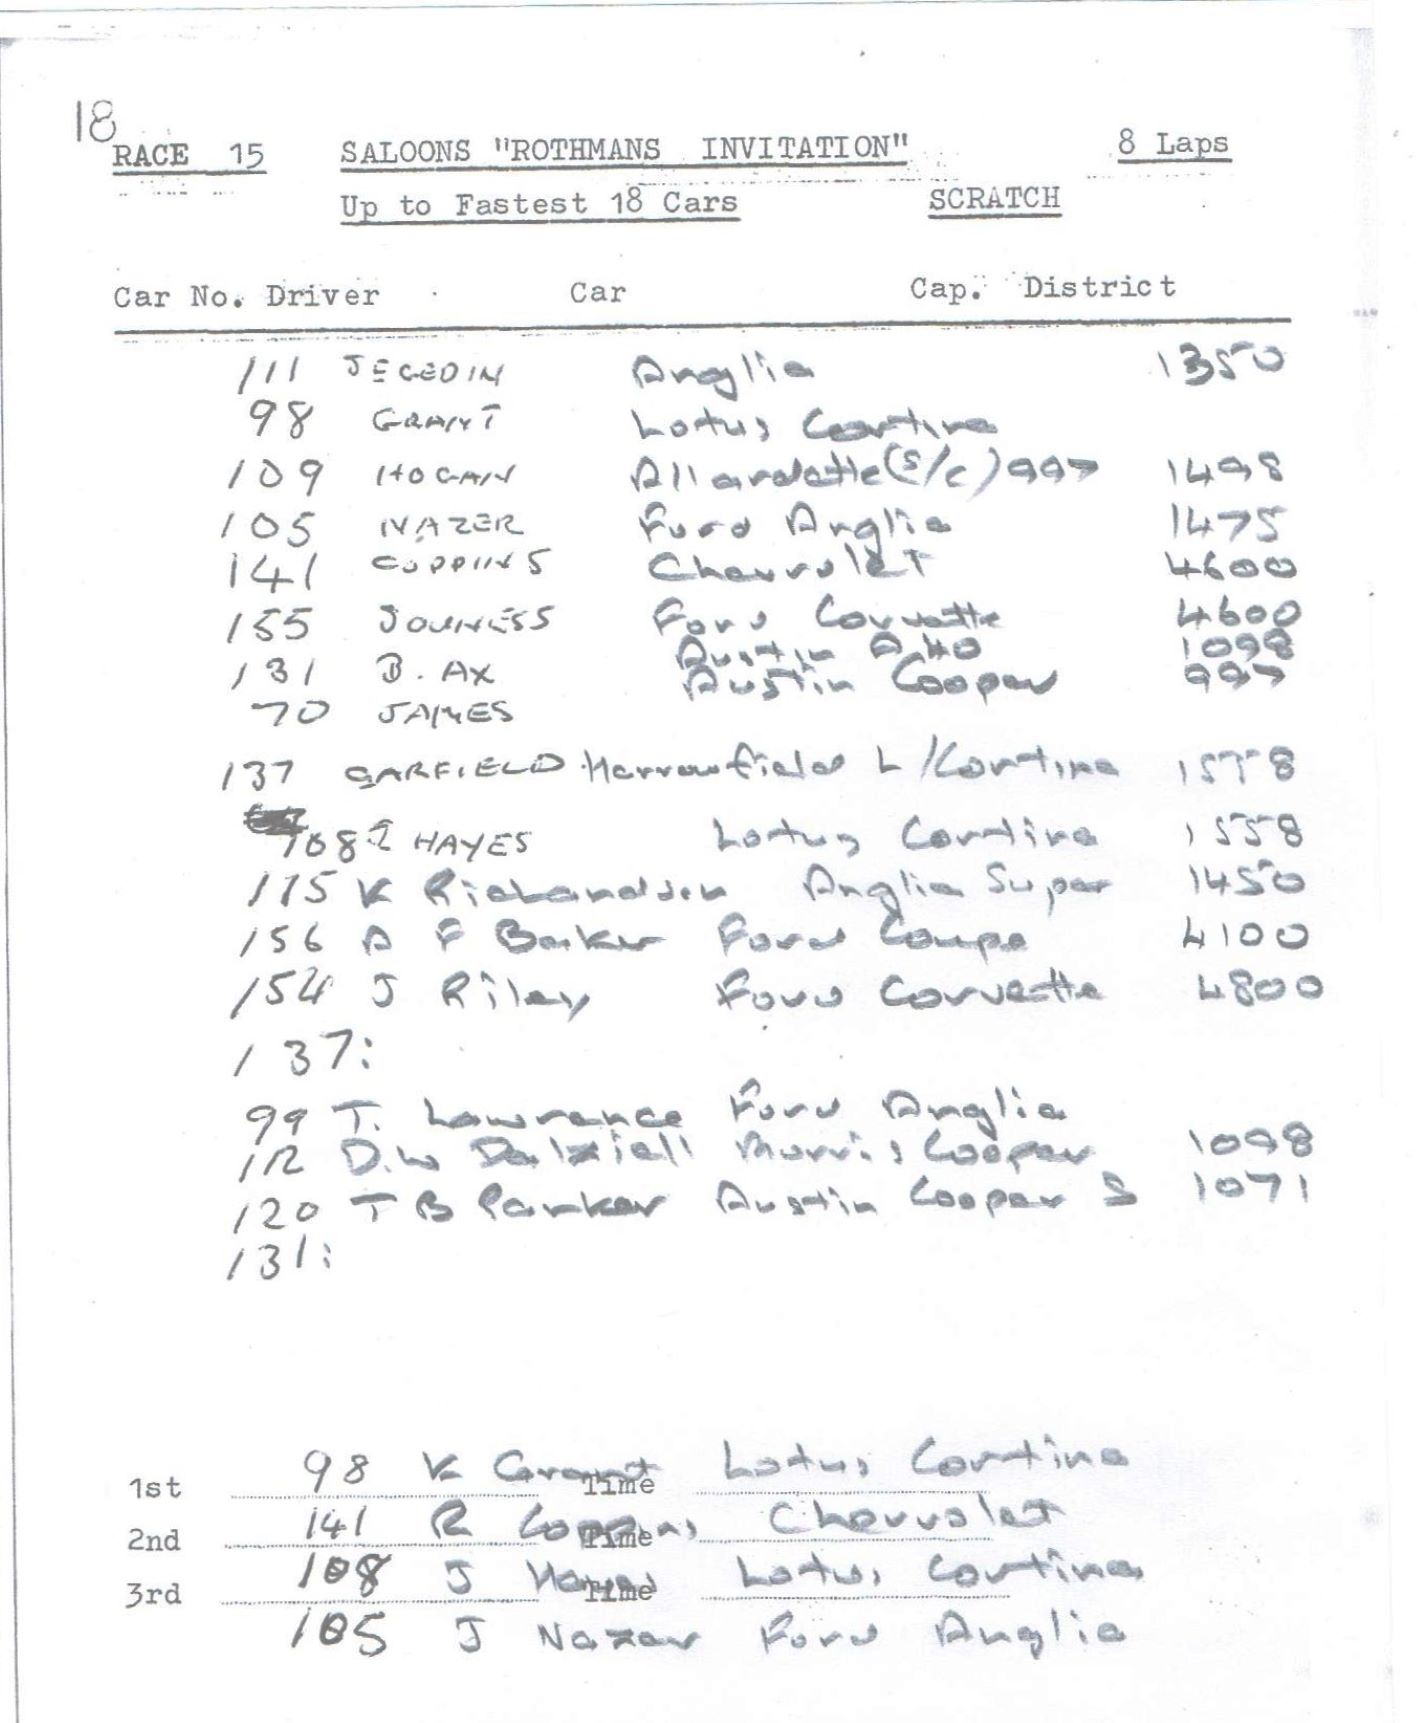 18
RACE 15 SALOONS "ROTHMANS INVITATION" 8 Laps
Up to Fastest 18 Cars SCRATCH
Car No. Driver Car Cap. District
111 JEGEDIN Anglia 1350
98 GRANT Lotus Cortina
109 HOGAN Allardette (s/c) 997 1498
105 NAZER Ford Anglia 1475
141 COPPINS Chevrolet 4600
155 Ford Corvette 4600
Austin A40 1098
131 B. AX Austin Cooper 997
70 JAMES
137 GARFIELD Harrowfield L/Cortina 1558
108 J HAYES Lotus Cortina 1558
115 K Richardson Anglia Super 1450
156 A F Barker Ford Coupe 4100
154 J Riley Ford Corvette 4800
137:
99 T. Lawrence Ford Anglia
112 D.W Dalziell Morris Cooper 1098
120 T B Parker Austin Cooper S 1071
131:
1st 98 K Grant Time Lotus Cortina
2nd 141 R Coppins Time Chevrolet
3rd 108 J Hayes Time Lotus Cortina
105 J Nazer Ford Anglia